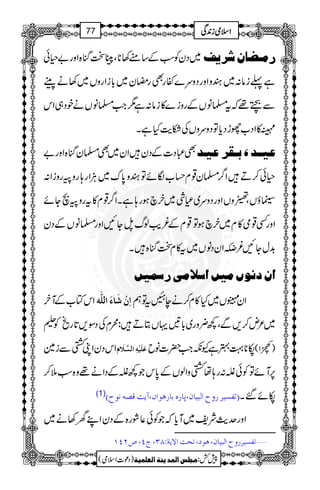 اسلامی زندگی 77
رمضان شریف میں دن کو سب کے سامنے کھانا، پینا سخت گناہ اور بے حیائی
ہے پہلے زمانہ میں ہندو اور دوسرے کفار بھی رمضان میں بازاروں میں کھانے پینے
سے بچتے تھے کہ یہ مسلمانوں کے روزے کا زمانہ ہے مگر جب مسلمانوں نے خود ہی اس
مہینہ کا ادب چھوڑ دیا تو دوسروں کی شکایت کیا ہے۔
عید، بقر عید بھی عبادت کے دن ہیں ان میں بھی مسلمان گناہ اور بے
حیائی کرتے ہیں اگر مسلمان قوم حساب لگائے تو ہندو پاک میں ہزارہا روپیہ روزانہ
سینماؤں، تھیٹروں اور دوسری عیاشی میں خرچ ہو رہا ہے۔ اگر قوم کا یہ روپیہ بچ جائے
اور کسی قومی کام میں خرچ ہو تو قوم کے غریب لوگ پل جائیں اور مسلمانوں کے دن
بدل جائیں غرضکہ ان دنوں میں یہ کام سخت گناہ ہیں۔
ان دنوں میں اسلامی رسمیں
ان مہینوں میں کیا کام کرنے چاہئیں یہ تو ہم اِنْ شَآءَ اللّٰہ اس کتاب کے آخر
میں عرض کریں گے، کچھ ضروری باتیں یہاں بتاتے ہیں: محرم: کی دسویں تاریخ کو حلیم
(کھچڑا) پکانا بہت بہتر ہے کیونکہ جب حضرتِ نوح عَلَیْہِ السَّلَام اس دن اپنی کشتی سے زمین
پر آئے تو کوئی غلہ نہ رہا تھا کشتی والوں کے پاس جو کچھ غلہ کے دانے تھے وہ سب ملا کر
پکائے گئے۔ (تفسیر روح البیان، پارہ بارھواں، آیت قصہ نوح)(1)
اور حدیث شریف میں آیا کہ جو کوئی عاشورہ کے دن اپنے گھر کھانے میں
......تفسیر روح البیان، ھود، تحت الایۃ:۳۸، ج٤، ص١٤٢
پیش کش: مجلس المدینۃ العلمیۃ (دعوتِ اسلامی)